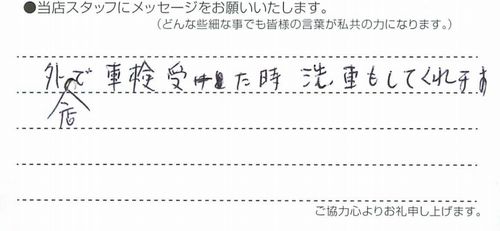 ●当店スタッフにメッセージをお願いいたします。
（どんな些細な事でも皆様の言葉が私共の力になります。）
外店で車検受けた時 洗車もしてくれます
ご協力心よりお礼申し上げます。